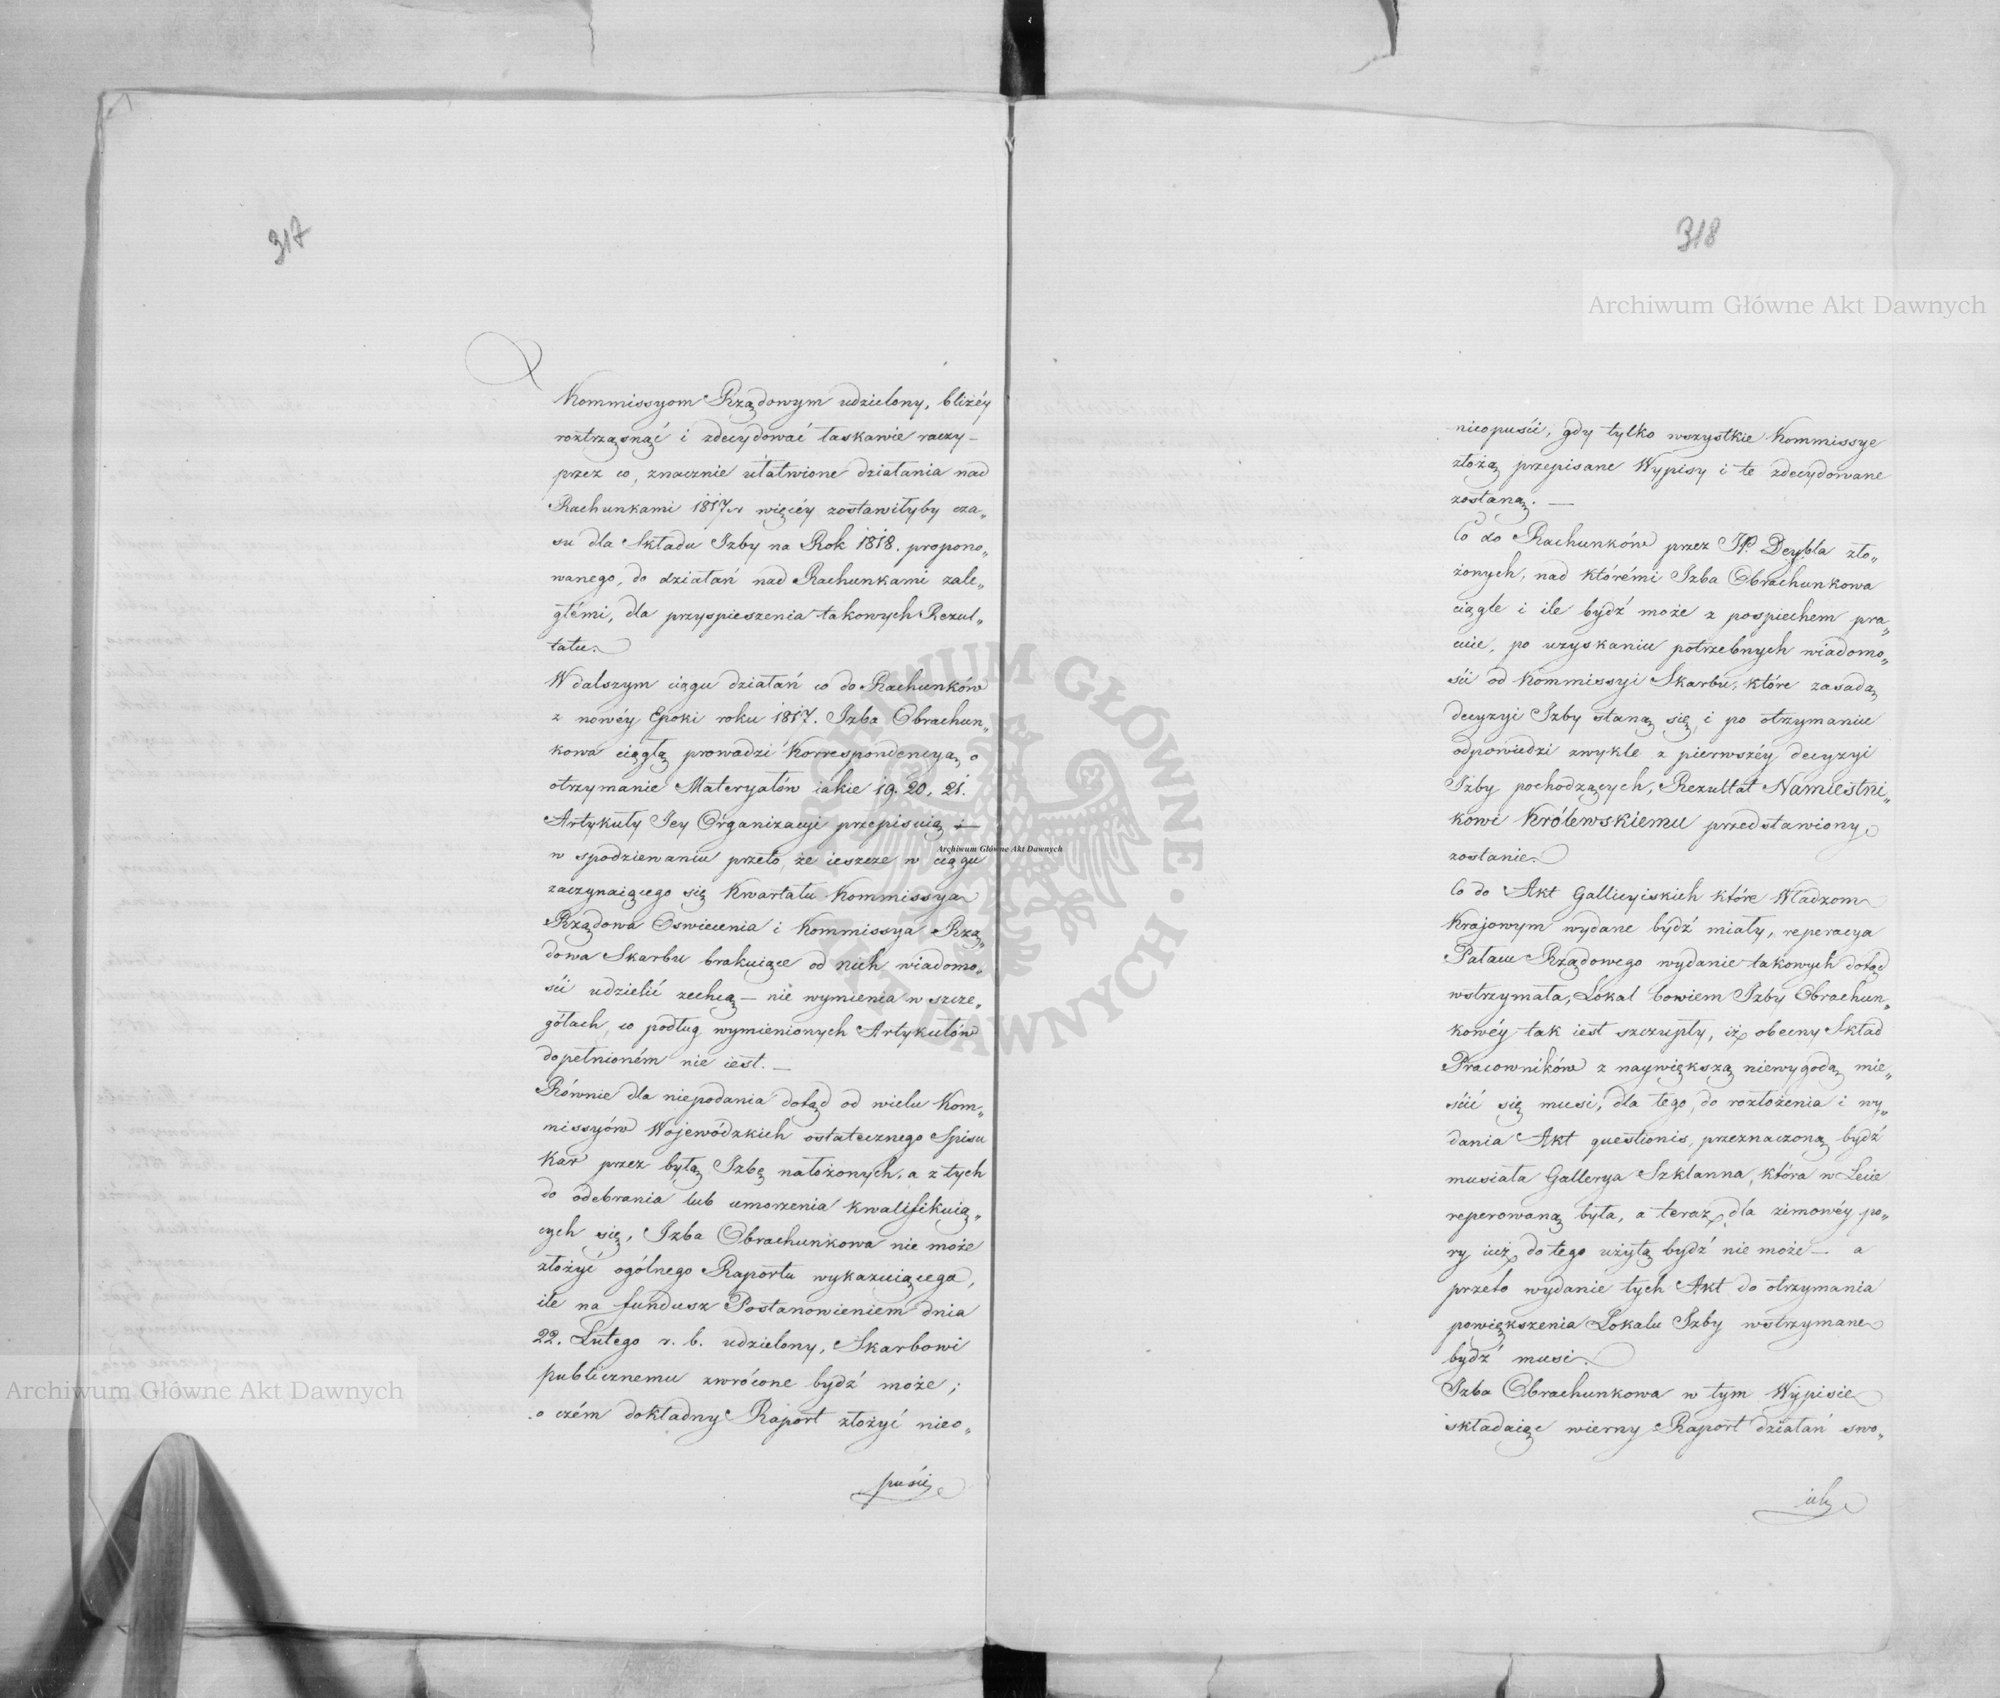 317
Kommissyom Rządowym udzielony, bliżéy
roztrząsnąć i zdecydować łaskawie raczy –
przez co, znacznie ułatwione działania nad
Rachunkami 1817 r. więcéy zostawiłyby cza„
su dla Składu Izby na Rok 1818. propono„
wanego, do działań nad Rachunkami zale„
głémi, dla przyspieszenia takowych Rezul„
tatu.
W dalszym ciągu działań co do Rachunków
z nowéy Epoki roku 1817. Izba Obrachun„
kowa ciągłą prowadzi Korrespondencyą, o
otrzymanie Materyałów iakie 19. 20. 21.
Artykuły Jey Organizacyi przepisuią i –
w spodziewaniu przeto, że ieszcze w ciągu
zaczynaiącego się Kwartału Kommissya
Rządowa Oswiecenia i Kommissya Rzą„
dowa Skarbu brakuiące od nich wiadomo„
ści udzielić zechcą – nie wymienia w szcze„
gółach, co podług wymienionych Artykułów
dopełnioném nie iest. –
Równie dla niepodania dotąd od wielu Kom„
missyów Wojewódzkich ostatecznego Spisu
Kar przez byłą Izbę nałożonych, a z tych
do odebrania lub umorzenia kwalifikuią„
cych się, Izba Obrachunkowa nie może
złożyć ogólnego Raportu wykazuiącego,
ile na fundusz Postanowieniem dnia
22. Lutego r. b. udzielony, Skarbowi
publicznemu zwrócone bydź może;
o czém dokładny Raport złożyć nieo„
puści
318
Archiwum Główne Akt Dawnych
nieopuści, gdy tylko wszystkie Kommissye
złożą przepisane Wypisy i te zdecydowane
zostaną. –
Co do Rachunków przez JP. Deybla zło„
żonych, nad którémi Izba Obrachunkowa
ciągle i ile bydź może z pospiechem pra„
cuie, po uzyskaniu potrzebnych wiadomo„
ści od Kommissyi Skarbu, które zasadą
decyzyi Izby staną się, i po otrzymaniu
odpowiedzi zwykle z pierwszéy decyzyi
Izby pochodzących, Rezultat Namiestni„
kowi Królewskiemu przedstawiony
zostanie.
Co do Akt Gallicyiskich które Władzom
Krajowym wydane bydź miały, reperacya
Pałacu Rządowego wydanie takowych dotąd
wstrzymała, Lokal bowiem Izby Obrachun„
kowéy tak iest szczupły, iż obecny Skład
Pracowników z naywiększą niewygodą mie„
ścić się musi, dla tego, do rozłożenia i wy„
dania Akt questionis, przeznaczoną bydź
musiała Gallerya Szklanna, która w Lecie
reperowaną była, a teraz dla zimowéy po„
ry iuż do tego użytą bydź nie może – a
przeto wydanie tych Akt do otrzymania
powiększenia Lokalu Izby wstrzymane
bydź musi.
Izba Obrachunkowa w tym Wypisie
składaiąc wierny Raport działań swo„
ich
Archiwum Główne Akt Dawnych
Archiwum Główne Akt Dawnych
ARCHIWUM GŁÓWNE · AKT DAWNYCH ·